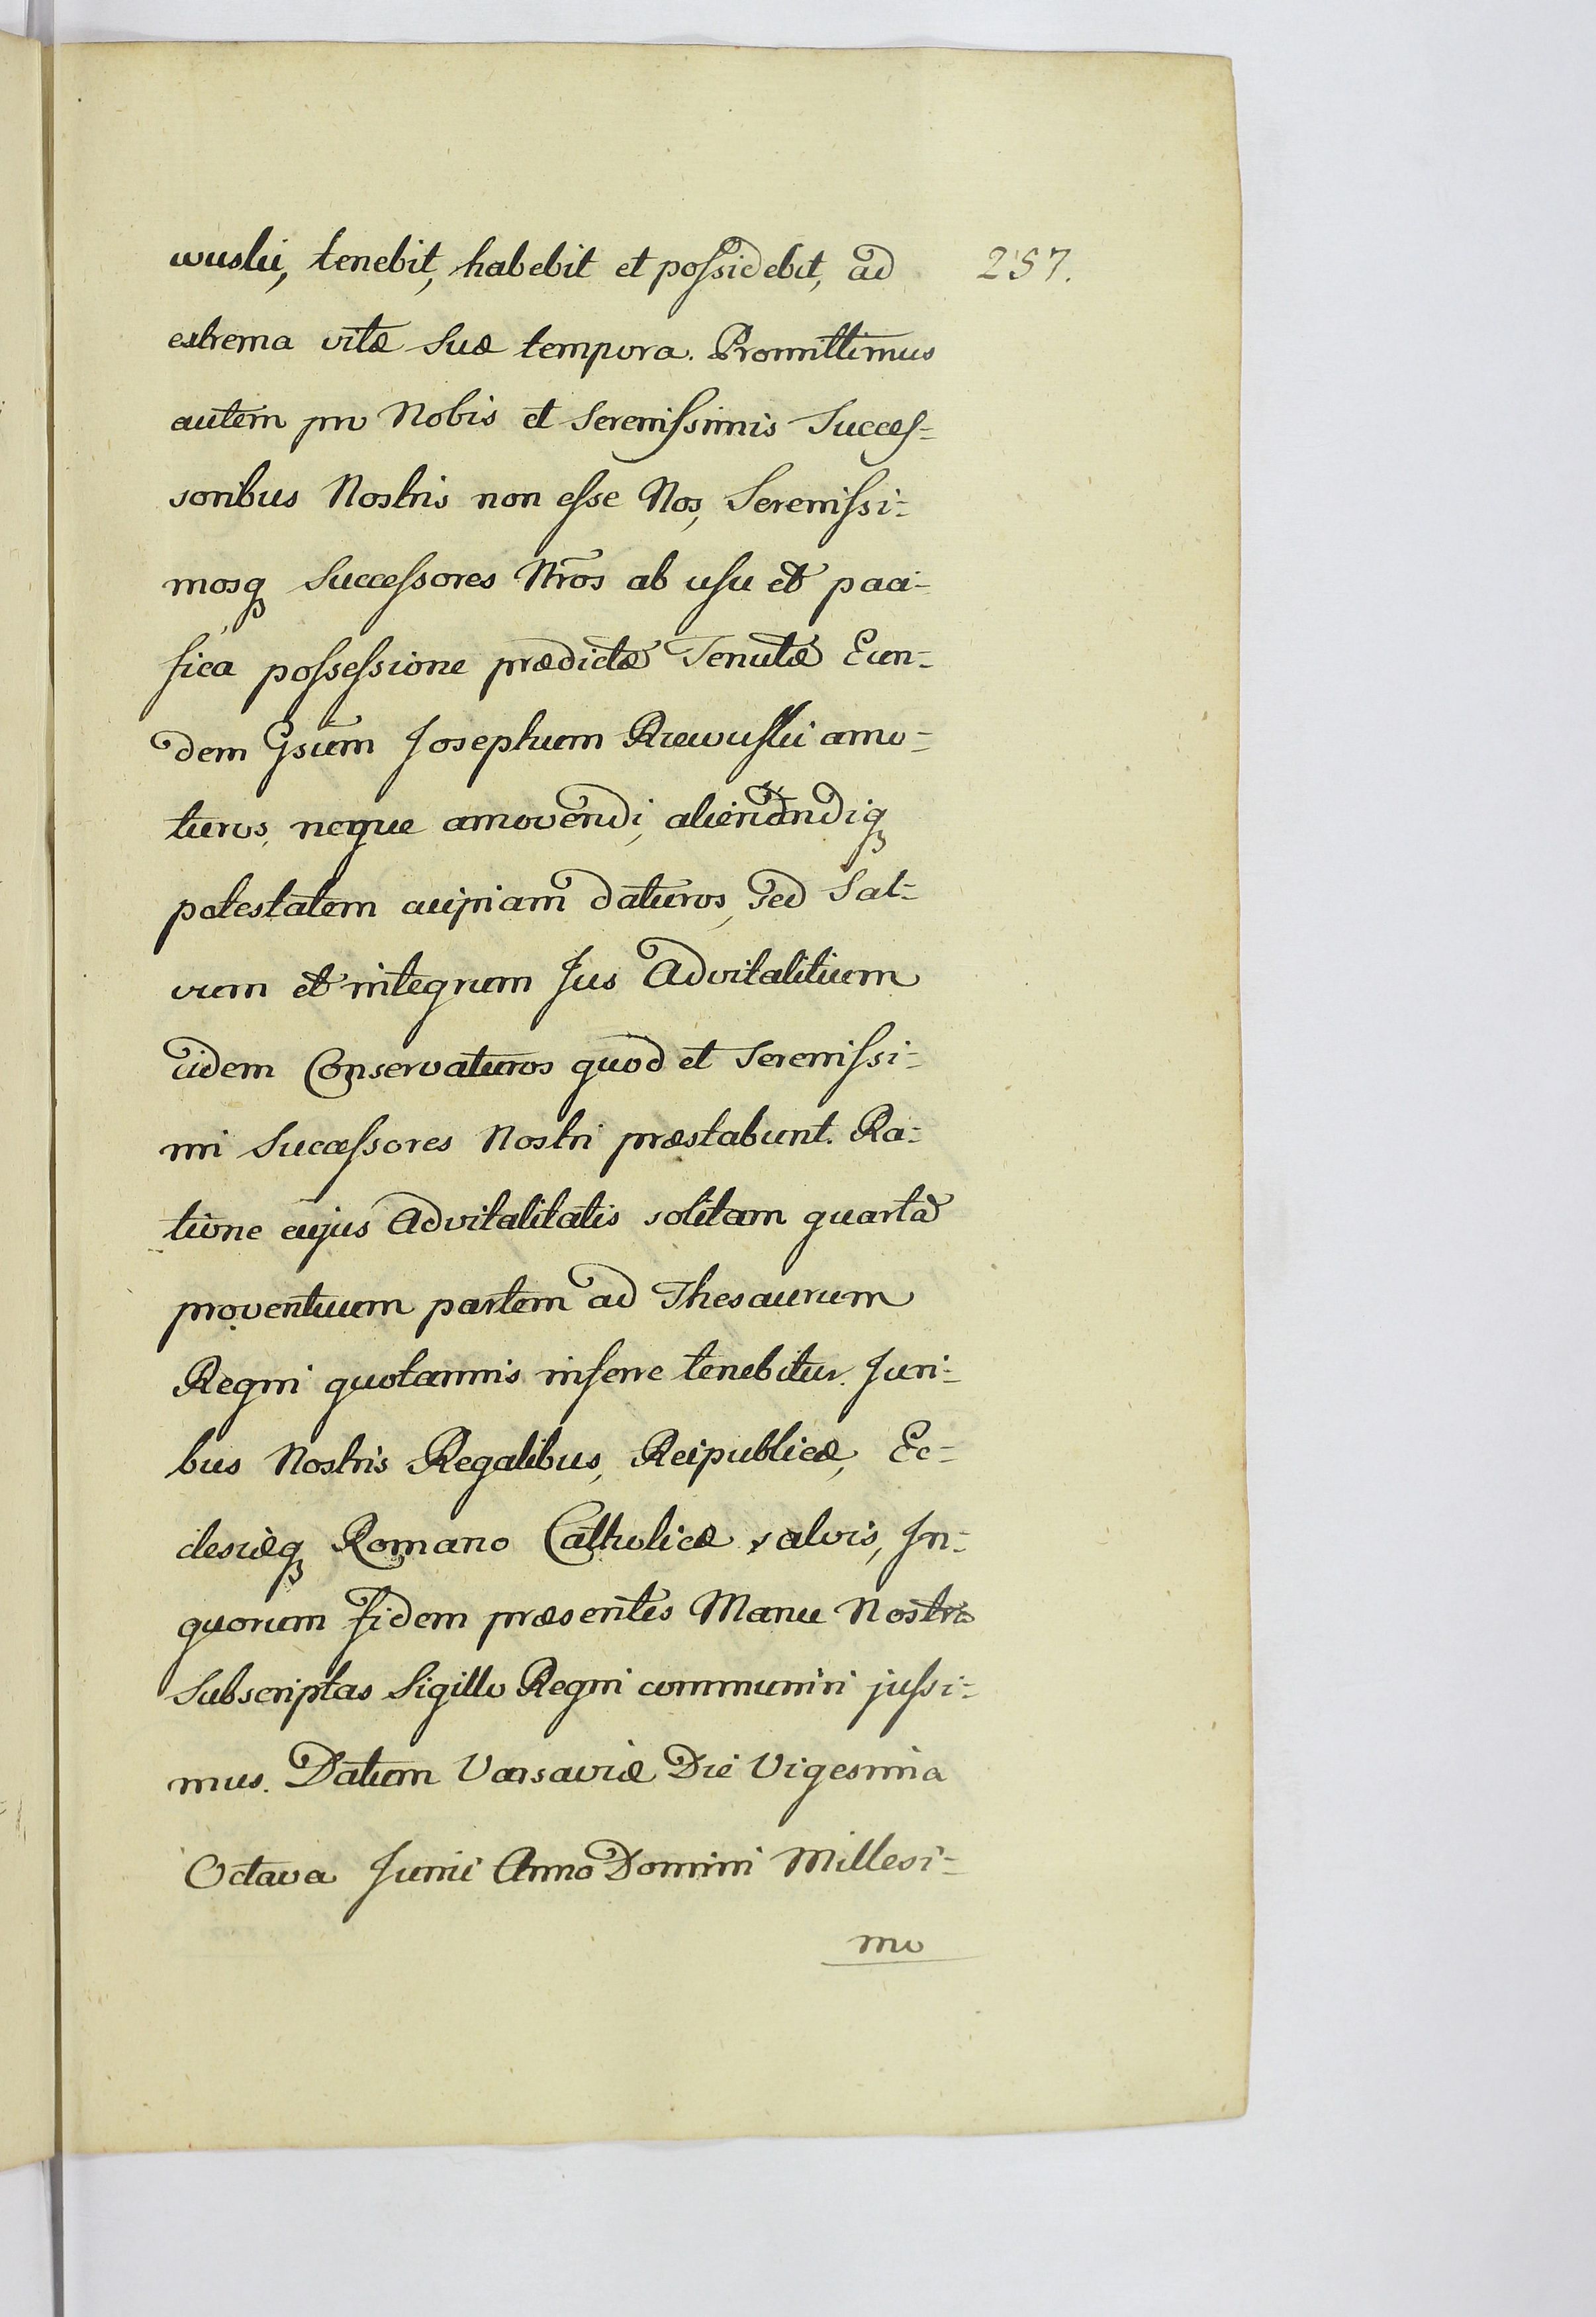 wuski, tenebit, habebit et possidebit, ad 257.
extrema vitæ suæ tempora. Promittimus
autem pro Nobis et Serenissimis Succes=
soribus Nostris non esse Nos, Serenissi=
mosq successores Nr̃os ab usu et paci=
fica possessione prædictæ Tenutæ Eun=
dem Gsum Josephum Rzewuski amo=
turos, neque amovendi, alienandiq
potestatem cuipiam daturos, sed Sal=
vum et integrum Jus Advitalitium
eidem Conservaturos quod et Serenissi=
mi Successores Nostri præstabunt. Ra=
tione cujus Advitalitatis solitam quartã
proventuum partem ad Thesaurum
Regni quotannis inferre tenebitur. Juri=
bus Nostris Regalibus, Reipublicæ, Ec=
clesiæq Romano Catholicæ salvis, In=
quorum fidem præsentes Manu Nostra
Subscriptas Sigillo Regni communiri jussi=
mus. Datum Varsaviæ Die Vigesima
Octava Junii Anno Domini Millesi=
mo